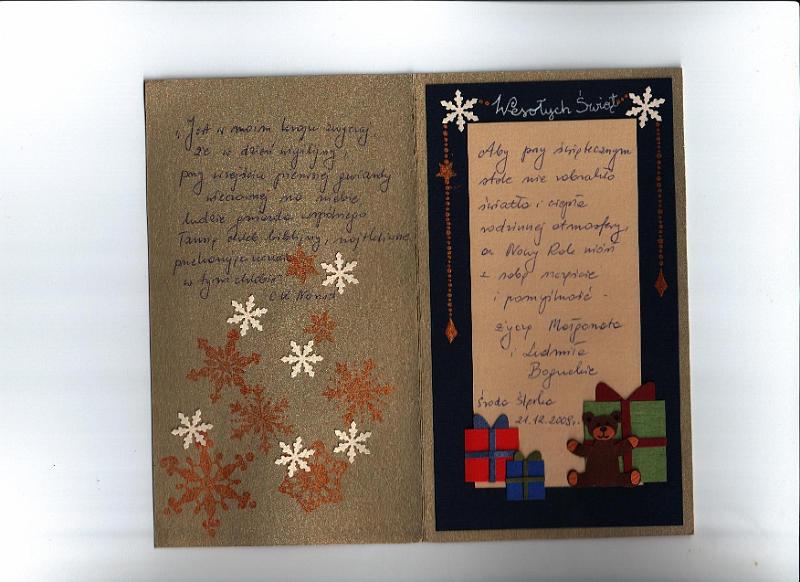 "Jest w moim kraju zwyczaj
że w dzień wigilijny,
przy wzejściu pierwszej gwiazdy
wieczornej na niebie,
ludzie gniazda wspólnego
łamią chleb biblijny, najtkliwsze
przekazując uczucia
w tym chlebie"
C.K. Norwid
Wesołych Świąt
Aby przy świątecznym
stole nie zabrakło
światła i ciepła
rodzinnej atmosfery,
a Nowy Rok niósł
z sobą szczęście
i pomyślność -
życzą Małgorzata
i Ludmiła
Boguckie
Środa Śląska
21.12.2009r.